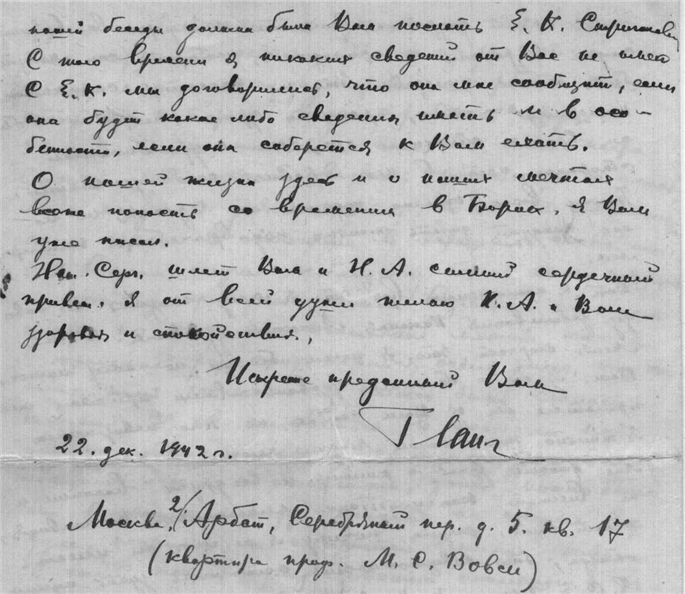 нашей беседы должна была Вам послать Е. К.
С того времени я никаких сведений от Вас не имел
С Е. К. мы договорились, что она мне сообщит, если
она будет какие либо сведения иметь и в осо-
бенности, если она соберется к Вам ехать.
О нашей жизни здесь и о наших мечтах
попасть со временем в Я Вам
уже писал.
Серг. шлет Вам и Н. А. самый сердечный
привет. Я от всей души желаю Н. А. и Вам
здоровья и спокойствия,
Искренне преданный Вам
22. дек. 1942 г.
Москва, 2/Арбат, Серебряный пер. д. 5. кв. 17
(квартира проф. М. С. Вовси)